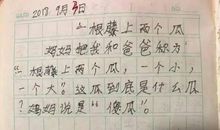 2018. 9月3日
一根藤上两个瓜
妈妈把我和爸爸称为
“一根藤上两个瓜，一个小，
一个大？这瓜到底是什么瓜
？妈妈说是“傻瓜”。